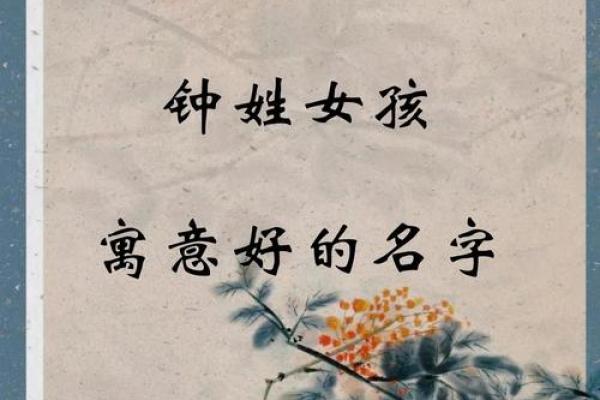 钟姓女孩
寓意好的名字